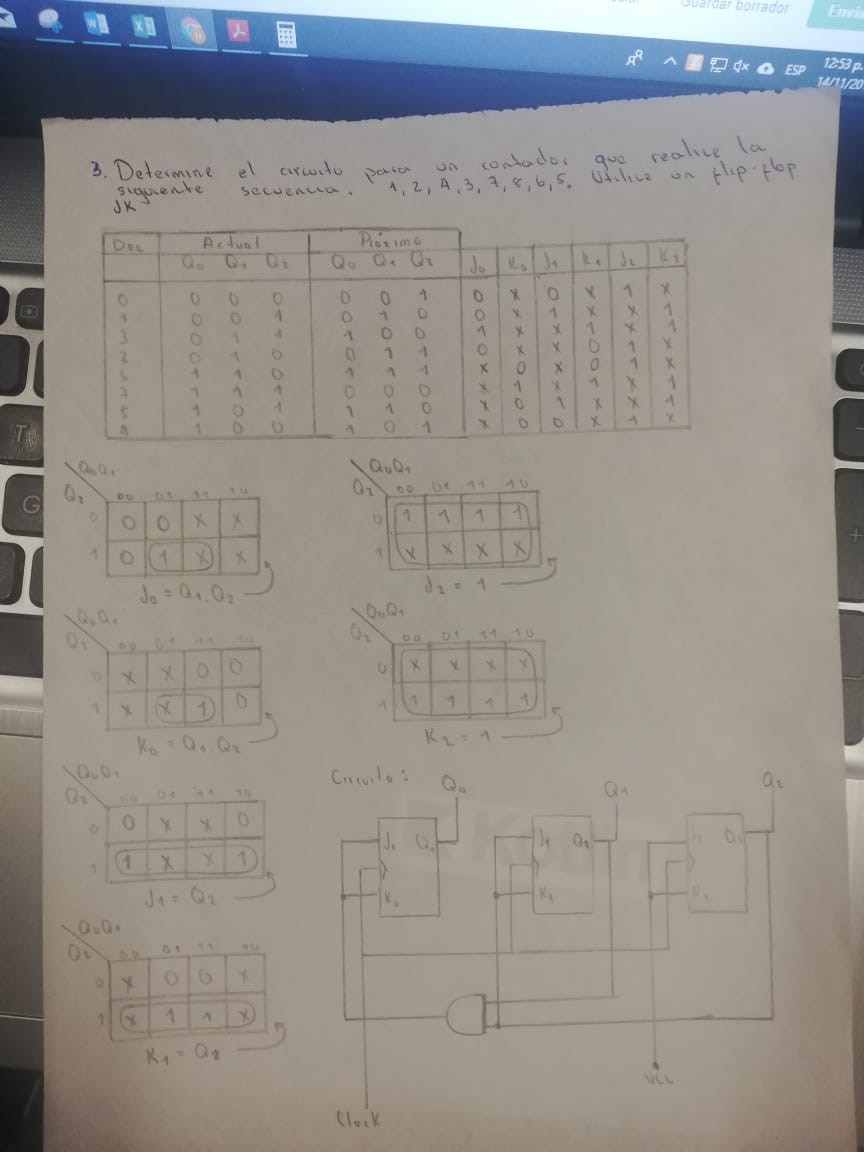 Guardar borrador
Envia
ESP
12:53 p.
14/11/20
3. Determine el circuito para un contador que realice la
siguiente secuencia. 1, 2, 4, 3, 7, 8, 6, 5. Utilice un flip-flop
JK
Dec Actual Próximo
Q0 Q1 Q2 Q0 Q1 Q2 J0 K0 J1 K1 J2 K2
0 0 0 0 0 0 1 0 x 0 x 1 x
1 0 0 1 0 1 0 0 x 1 x x 1
3 0 1 1 1 0 0 1 x x 1 x 1
2 0 1 0 0 1 1 0 x x 0 1 x
6 1 1 0 1 1 1 x 0 x 0 1 x
7 1 1 1 0 0 0 x 1 x 1 x 1
5 1 0 1 1 1 0 x 0 1 x x 1
4 1 0 0 1 0 1 x 0 0 x 1 x
Q0Q1
Q2 00 01 11 10
0 0 0 x x
1 0 1 x x
J0 = Q1.Q2
Q0Q1
Q2 00 01 11 10
0 1 1 1 1
1 x x x x
J2 = 1
Q0Q1
Q2 00 01 11 10
0 x x 0 0
1 x x 1 0
K0 = Q1.Q2
Q0Q1
Q2 00 01 11 10
0 x x x x
1 1 1 1 1
K2 = 1
Q0Q1
Q2 00 01 11 10
0 0 x x 0
1 1 x x 1
J1 = Q2
Q0Q1
Q2 00 01 11 10
0 x 0 0 x
1 x 1 1 x
K1 = Q2
Circuito:
Q0 Q1 Q2
J0 Q0 J1 Q1 J2 Q2
K0 K1 K2
VCC
Clock